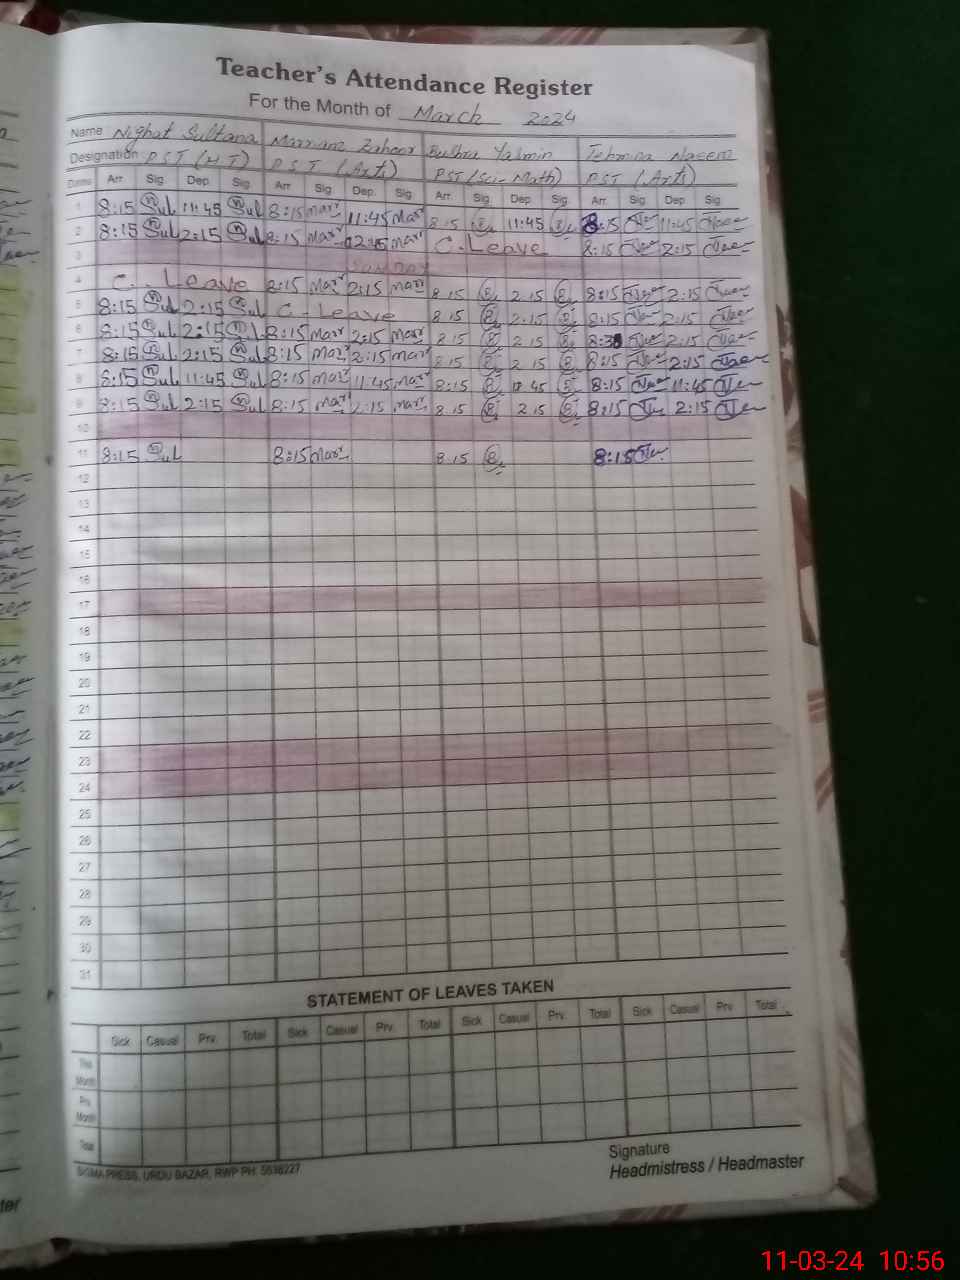 Teacher's Attendance Register
For the Month of March 2024
Name Nighat Sultana Marriam Zahoor Bushra Yasmin Tehmina Naeem
Designation PST (HT) PST (Arts) PST (Sci-Math) PST (Arts)
Dates Arr. Sig. Dep. Sig. Arr. Sig. Dep. Sig. Arr. Sig. Dep. Sig. Arr. Sig. Dep. Sig.
1 8:15 Sul 11:45 Sul 8:15 Mar 11:45 Mar 8 15 11:45 8:15 11:45
2 8:15 Sul 2:15 Sul 8:15 Mar 2:15 Mar C. Leave 8:15 2:15
3 Sunday
4 C. Leave 8:15 Mar 2:15 Mar 8 15 2 15 8:15 2:15
5 8:15 Sul 2:15 Sul C - Leave 8 15 2 15 8:15 2:15
6 8:15 Sul 2:15 Sul 8:15 Mar 2:15 Mar 8 15 2 15 2:15
7 8:15 Sul 2:15 Sul 8:15 Mar 2:15 Mar 8 15 2 15 8:15 2:15
8 8:15 Sul 11:45 Sul 8:15 Mar 11:45 Mar 8:15 45 8:15 11:45
9 8:15 Sul 2:15 Sul 8:15 Mar 2:15 Mar 8 15 2 15 8:15 2:15
10
11 8:15 Sul 8:15 Mar 8 15 8:15
12
13
14
15
16
17
18
19
20
21
22
23
24
25
26
27
28
29
30
31
STATEMENT OF LEAVES TAKEN
Sick Casual Prv. Total Sick Casual Prv. Total Sick Casual Prv. Total Sick Casual Prv. Total
This Month
Prv. Month
Total
SIGMA PRESS, URDU BAZAR, RWP PH: 5538227
Signature
Headmistress / Headmaster
11-03-24 10:56